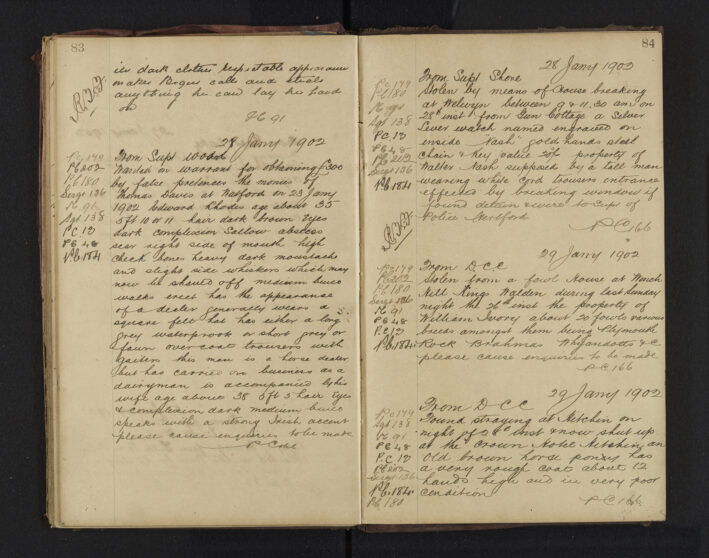 83
in dark clothes respectable appearance
makes Bogus calls and steals
anything he can lay his hand
on
PC 91
28 Jany 1902
From Supt Wood
Wanted on warrant for obtaining £300
by false pretences the monies of
Thomas Davis at Watford on 23 Jany
1902 Edward Rhodes age about 35
5ft 10 or 11 hair dark brown eyes
dark complexion sallow abscess
scar right side of mouth high
cheek bones heavy dark moustache
and slight side whiskers which may
now be shaved off medium build
walks erect has the appearance
of a dealer generally wears a
square felt hat has either a long
grey waterproof or short grey or
fawn over coat trousers with
gaiters this man is a horse dealer
but has carried on business as a
dairyman is accompanied by his
wife age about 38 5ft 3 hair eyes
& complexion dark medium build
speaks with a strong Irish accent
please cause enquiries to be made
PC 179
PC 202
PC 180
Sergt 136
PC 91
Sgt 138
P.C. 13
PC 48
PC 184
84
28 Jany 1902
From Supt Shore
Stolen by means of House breaking
at Welwyn between 9 & 11.30 am on
28th inst from Gun Cottage a Silver
Lever watch named engraved on
inside Nash, gold hands steel
chain & key value 20/- property of
Walter Nash supposed by a tall man
wearing white Cord trousers entrance
effected by breaking window if
found detain & wire to Supt of
Police Hertford
PC 166
PC 179
PC 180
Sgt 138
P.C. 13
PC 48
PC 202
Sergt 136
PC 184
29 Jany 1902
From D.C.C
Stolen from a fowl House at Wandon
Mill Kings Walden during last Sunday
night the 26th inst the property of
William Ivory about 20 fowls various
breeds amongst them being Plymouth
Rock Brahmas Whyandotts &c
please cause enquiries to be made
PC 166
PC 179
PC 202
PC 180
Sergt 136
PC 91
PC 48
P.C. 13
PC 184
29 Jany 1902
From D.C.C
Found straying at Hitchin on
night of 28th inst & now shut up
at the Crown Hotel Hitchin, an
Old brown horse poney has
a very rough coat about 12
hands high and in very poor
condition
PC 166
PC 179
Sgt 138
PC 91
PC 48
P.C. 13
PC 202
Sergt 136
PC 184
PC 180